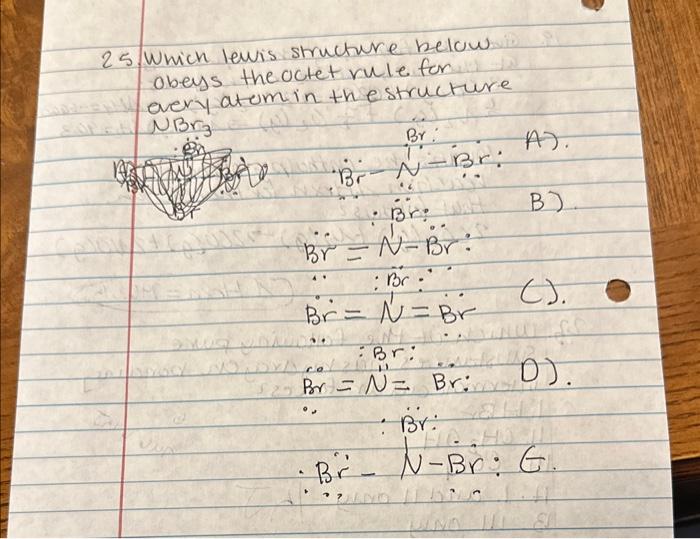 25. Which lewis structure below
obeys the octet rule for
every atom in the structure
NBr3
Br
:Br - N - Br: A).
:Br: B).
Br = N - Br:
:Br: C).
Br = N = Br
:Br:
Br = N = Br: D).
:Br:
:Br - N - Br: E.